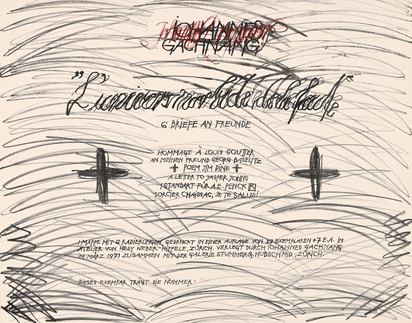 JOHANNES
GACHNANG
"L'univers morbide de la faute"
6 BRIEFE AN FREUNDE
HOMMAGE À LOUIS SOUTTER
AN MEINEN FREUND GEORG BASELITZ
POEM JIM DINE
A LETER TO JASPER JOHNS
1 STANDART FÜR A.E. PENCK
SORCIER CHAISSAC, JE TE SALUE!
1 MAPPE MIT 6 RADIERUNGEN, GEDRUCKT IN EINER AUFLAGE VON EXEMPLAREN + 7 E.A. IM
ATELIER VON HEDY WEBER, ZÜRICH. VERLEGT DURCH JOHANNES GACHNANG
IM MÄRZ 1971 ZUSAMMEN MIT DER GALERIE STUMMER & HUBSCHMID, ZÜRICH.
DIESES EXEMPLAR TRÄGT DIE NUMMER: